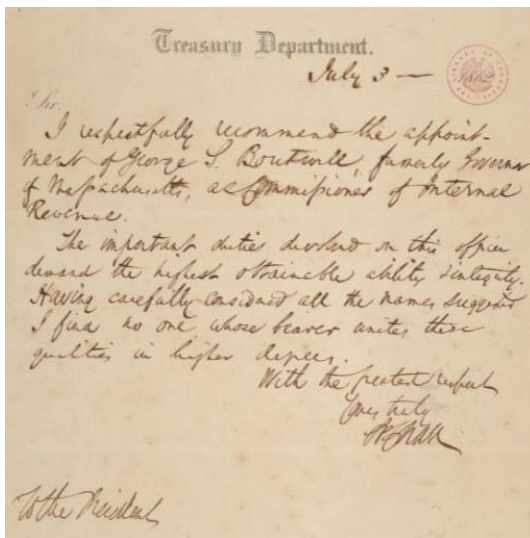 Treasury Department.
July 3 —
Sir,
I respectfully recommend the appoint-
ment of George S. Boutwell, formerly Governor
of Massachusetts, as Commissioner of Internal
Revenue.
The important duties devolved on this officer
demand the highest obtainable ability & integrity.
Having carefully considered all the names suggested
I find no one whose bearer unites these
qualities in higher degree.
With the greatest respect
Yours truly
SPChase
To the President